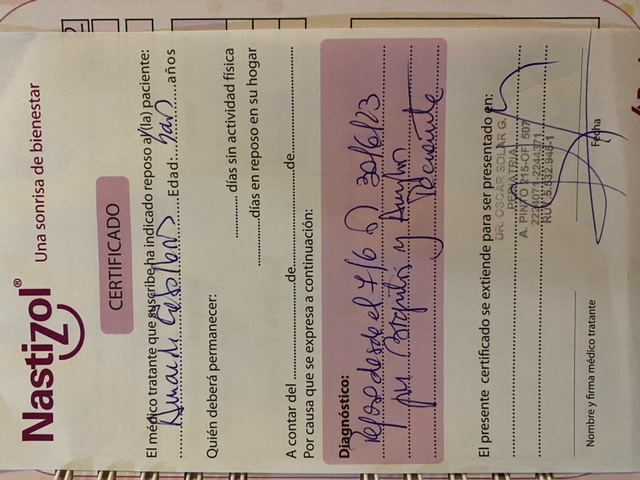 Nastizol®
Una sonrisa de bienestar
CERTIFICADO
El médico tratante que suscribe ha indicado reposo a/(la) paciente:
Edad:..............años
Quién deberá permanecer:
............... días sin actividad física
...............días en reposo en su hogar
A contar del...............................de..............................................de...............................
Por causa que se expresa a continuación:
Diagnóstico:
reposo desde el 7/6 30/6/23
por Bronquitis y
El presente certificado se extiende para ser presentado en:
DR. OSCAR SOLAR G.
PEDIATRIA
A. PINTO 215-OF. 507
2224071-2244371
RUT
Nombre y firma médico tratante
Fecha